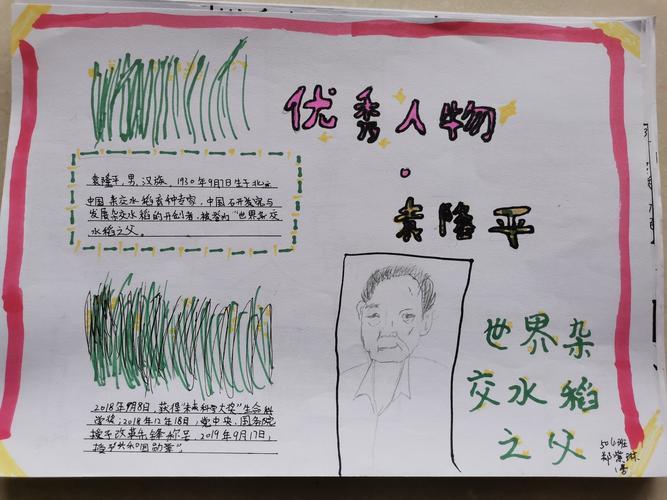 优秀人物
·
袁隆平
袁隆平,男,汉族,1930年9月7日生于北京
中国杂交水稻育种专家,中国研究与
发展杂交水稻的开创者,被誉为"世界杂交
水稻之父。
2018年9月8日,获得未来科学大奖"生命科
学奖;2018年12月18日,党中央、国务院
授予改革先锋称号、2019年9月17日,
授予"共和国勋章"。
世界杂
交水稻
之父
506班
郑紫琳
1号